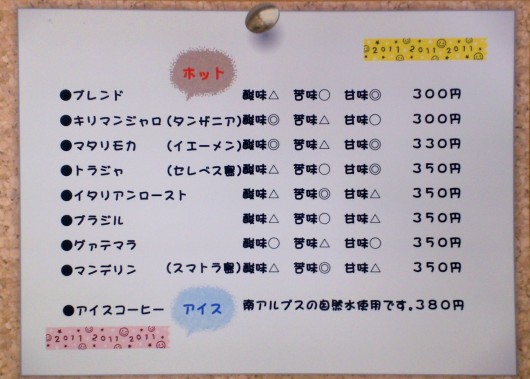 2011 2011 2011
ホット
●ブレンド 酸味△ 苦味○ 甘味◎ 300円
●キリマンジャロ(タンザニア)酸味◎ 苦味△ 甘味○ 300円
●マタリモカ (イエーメン)酸味◎ 苦味△ 甘味◎ 330円
●トラジャ (セレベス島)酸味△ 苦味○ 甘味◎ 350円
●イタリアンロースト 酸味△ 苦味◎ 甘味△ 350円
●ブラジル 酸味△ 苦味○ 甘味△ 350円
●グァテマラ 酸味○ 苦味△ 甘味○ 350円
●マンデリン (スマトラ島)酸味△ 苦味◎ 甘味△ 350円
●アイスコーヒー アイス 南アルプスの自然水使用です。380円
2011 2011 2011